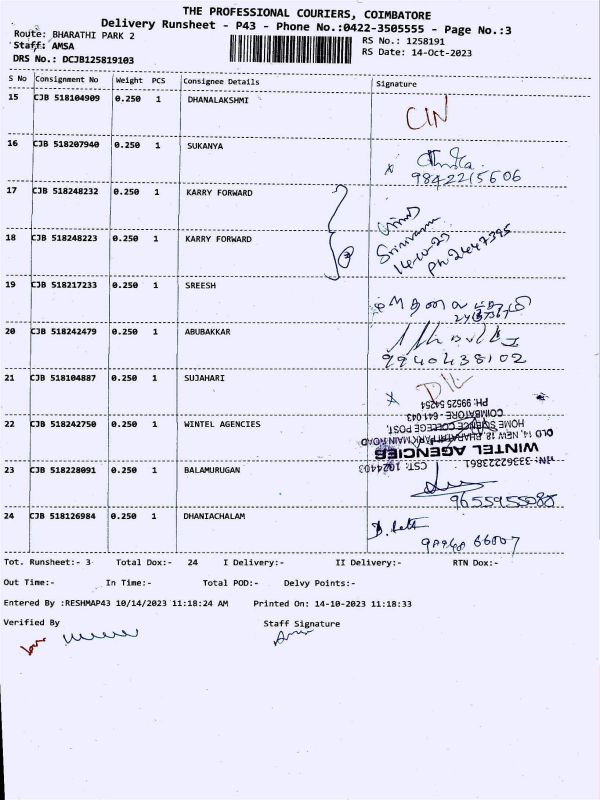 THE PROFESSIONAL COURIERS, COIMBATORE
Delivery Runsheet - P43 - Phone No.:0422-3505555 - Page No.:3
Route: BHARATHI PARK 2
RS No.: 1258191
Staff: AMSA
RS Date: 14-Oct-2023
DRS No.: DCJB125819103
S No Consignment No Weight PCS Consignee Details Signature
15 CJB 518104909 0.250 1 DHANALAKSHMI CIN
16 CJB 518207940 0.250 1 SUKANYA
9842215606
17 CJB 518248232 0.250 1 KARRY FORWARD
Srinivasan
14-10-23
18 CJB 518248223 0.250 1 KARRY FORWARD 2
19 CJB 518217233 0.250 1 SREESH
20 CJB 518242479 0.250 1 ABUBAKKAR
9940438102
21 CJB 518104887 0.250 1 SUJAHARI
22 CJB 518242750 0.250 1 WINTEL AGENCIES
WINTEL AGENCIES
OLD 14, NEW 18, BHARATHI PARK MAIN ROAD
HOME SCIENCE COLLEGE POST,
COIMBATORE - 641 043
PH: 99525 54254
TIN: 33362223861 CST: 1024403
23 CJB 518228091 0.250 1 BALAMURUGAN
24 CJB 518126984 0.250 1 DHANIACHALAM
Tot. Runsheet:- 3 Total Dox:- 24 I Delivery:- II Delivery:- RTN Dox:-
Out Time:- In Time:- Total POD:- Delvy Points:-
Entered By :RESHMAP43 10/14/2023 11:18:24 AM Printed On: 14-10-2023 11:18:33
Verified By Staff Signature